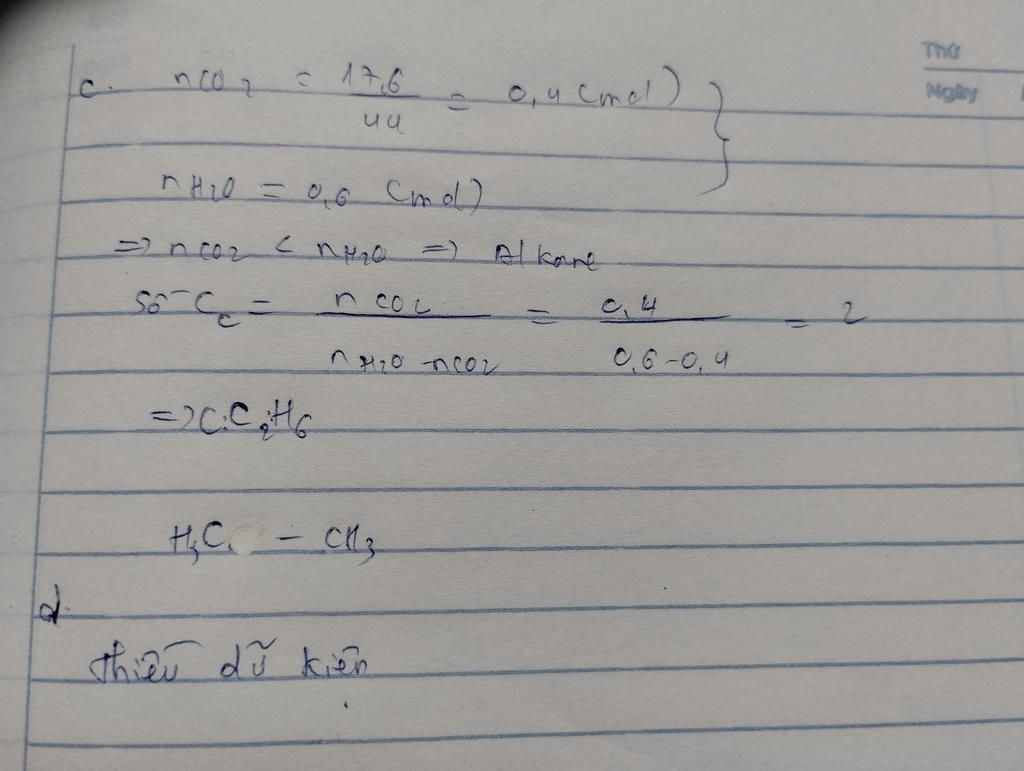 Thứ
Ngày
c. nCO2 = 17,6/44 = 0,4 (mol) }
nH2O = 0,6 (mol)
=> nCO2 < nH2O => Alkane
Số C_C = nCO2/(nH2O - nCO2) = 0,4/(0,6-0,4) = 2
=> C: C2H6
H3C - CH3
d.
thiếu dữ kiện